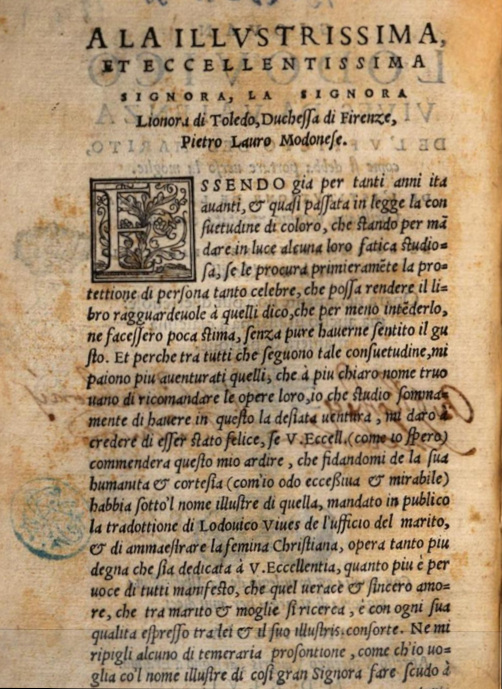 A LA ILLVSTRISSIMA,
ET ECCELLENTISSIMA
SIGNORA, LA SIGNORA
Lionora di Toledo, Duchessa di Firenze,
Pietro Lauro Modonese.
ESSENDO gia per tanti anni ita
auanti, & quasi passata in legge la con
suetudine di coloro, che stando per mā
dare in luce alcuna loro fatica studio-
sa, se le procura primieramēte la pro-
tettione di persona tanto celebre, che possa rendere il li-
bro ragguardeuole à quelli dico, che per meno intēderlo,
ne facessero poca stima, senza pure hauerne sentito il gu
sto. Et perche tra tutti che seguono tale consuetudine, mi
paiono piu auenturati quelli, che à piu chiaro nome truo
uano di ricomandare le opere loro, io che studio somma-
mente di hauere in questo la desiata uentura, mi daro à
credere di esser stato felice, se V. Eccell. (come io spero)
commendera questo mio ardire, che fidandomi de la sua
humanita & cortesia (com'io odo eccessiua & mirabile)
habbia sotto'l nome illustre di quella, mandato in publico
la tradottione di Lodouico Viues de l'ufficio del marito,
& di ammaestrare la femina Christiana, opera tanto piu
degna che sia dedicata à V. Eccellentia, quanto piu è per
uoce di tutti manifesto, che quel uerace & sincero amo-
re, che tra marito & moglie si ricerca, è con ogni sua
qualita espresso tra lei & il suo illustris. consorte. Ne mi
ripigli alcuno di temeraria prosontione, come ch'io uo-
glia co'l nome illustre di cosi gran Signora fare scudo à